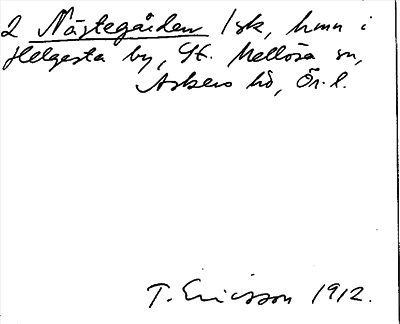 2 Nästegården /sk, hmn i
Helgesta by, St. Mellösa sn,
Askers hd, Ör. l.
T. Ericsson 1912.